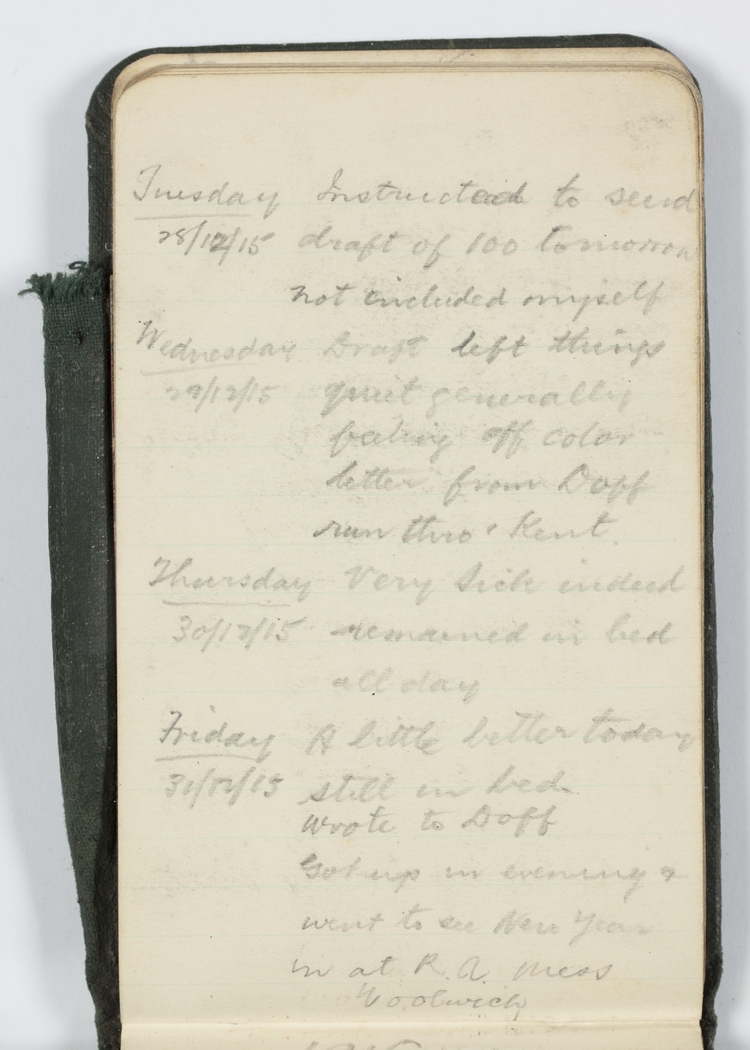 Tuesday Instructed to send
28/12/15 draft of 100 tomorrow
not included myself
Wednesday Draft left things
29/12/15 quiet generally
feeling off color
letter from Doff
run thro' Kent.
Thursday Very sick indeed
30/12/15 remained in bed
all day
Friday A little better today
31/12/15 still in bed.
wrote to Doff
Got up in evening &
went to see New Year
in at R.A. Mess
Woolwich